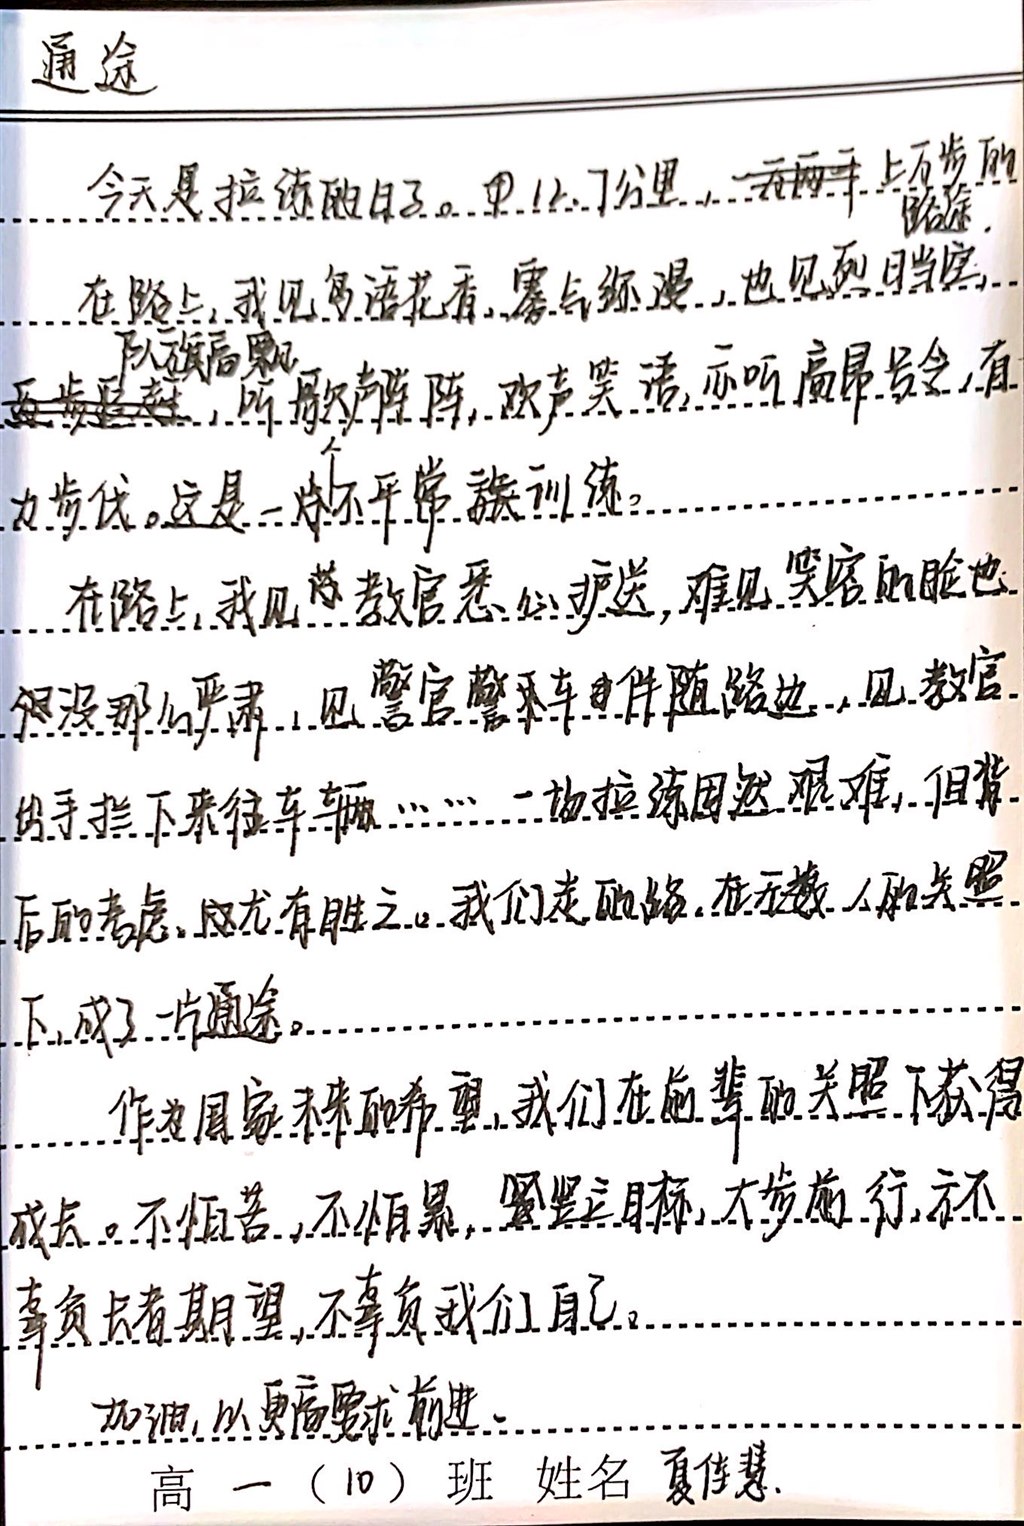 通途
今天是拉练的日子。12.7公里,上万步的
路途.
在路上,我见鸟语花香,雾气弥漫,也见烈日当空,
队旗高飘
,听歌声阵阵,欢声笑语,亦听高昂号令,有
力步伐。这是一个不平常的训练。
在路上,我见教官悉心护送,难见笑容的脸也
没那么严肃,见警官警车伴随路边,见教官
出手拦下来往车辆……一场拉练固然艰难,但背
后的考虑,尤有胜之。我们走的路,在无数人的关照
下,成了一片通途。
作为国家未来的希望,我们在前辈的关照下获得
成长。不怕苦,不怕累,竖立目标,大步前行,亦不
辜负长者期望,不辜负我们自己。
加油,以更高要求前进。
高一(10)班 姓名 夏佳慧.